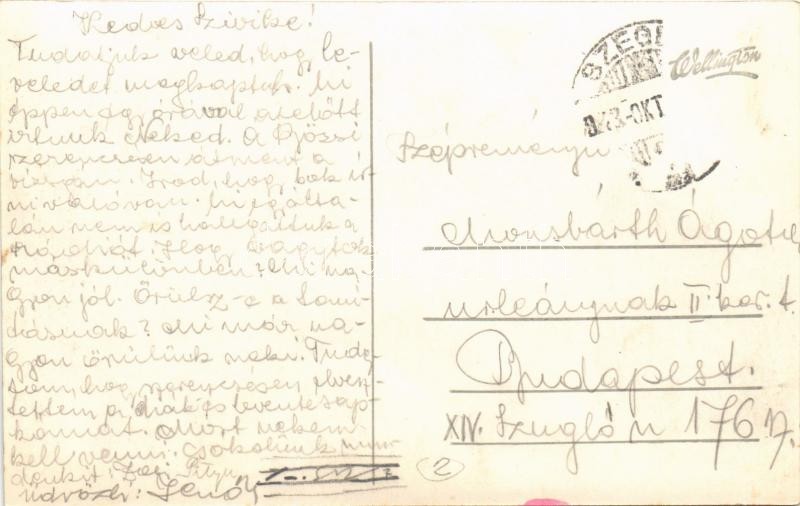 Kedves Szivike!
Tudatjuk veled, hogy le-
veledet megkaptuk. Mi
éppen egy órával azelőtt
írtunk Neked. A Győzői
szerencsésen átment a
vizsgán. Írod, hogy sok ír
ni valód van. Mi egyálta-
lán nem is hallgattuk a
rádiót. Hogy vagytok
máskülönben? Mi na-
gyon jól. Örülsz-e a tani-
tásnak? Mi már na-
gyon örülünk neki. Tuda-
tom, hogy szerencsésen elvesz-
tettem a levente sap-
kámat. Most nekem
kell venni. Csókolunk min
denkit: Pityu
üdvözöl: Jenő
SZEGE
43-OKT
Wellington
Szépreményű
Monsbarth Ágota
urleánynak II. kor. t.
Budapest.
XIV. Szugló u 176
2